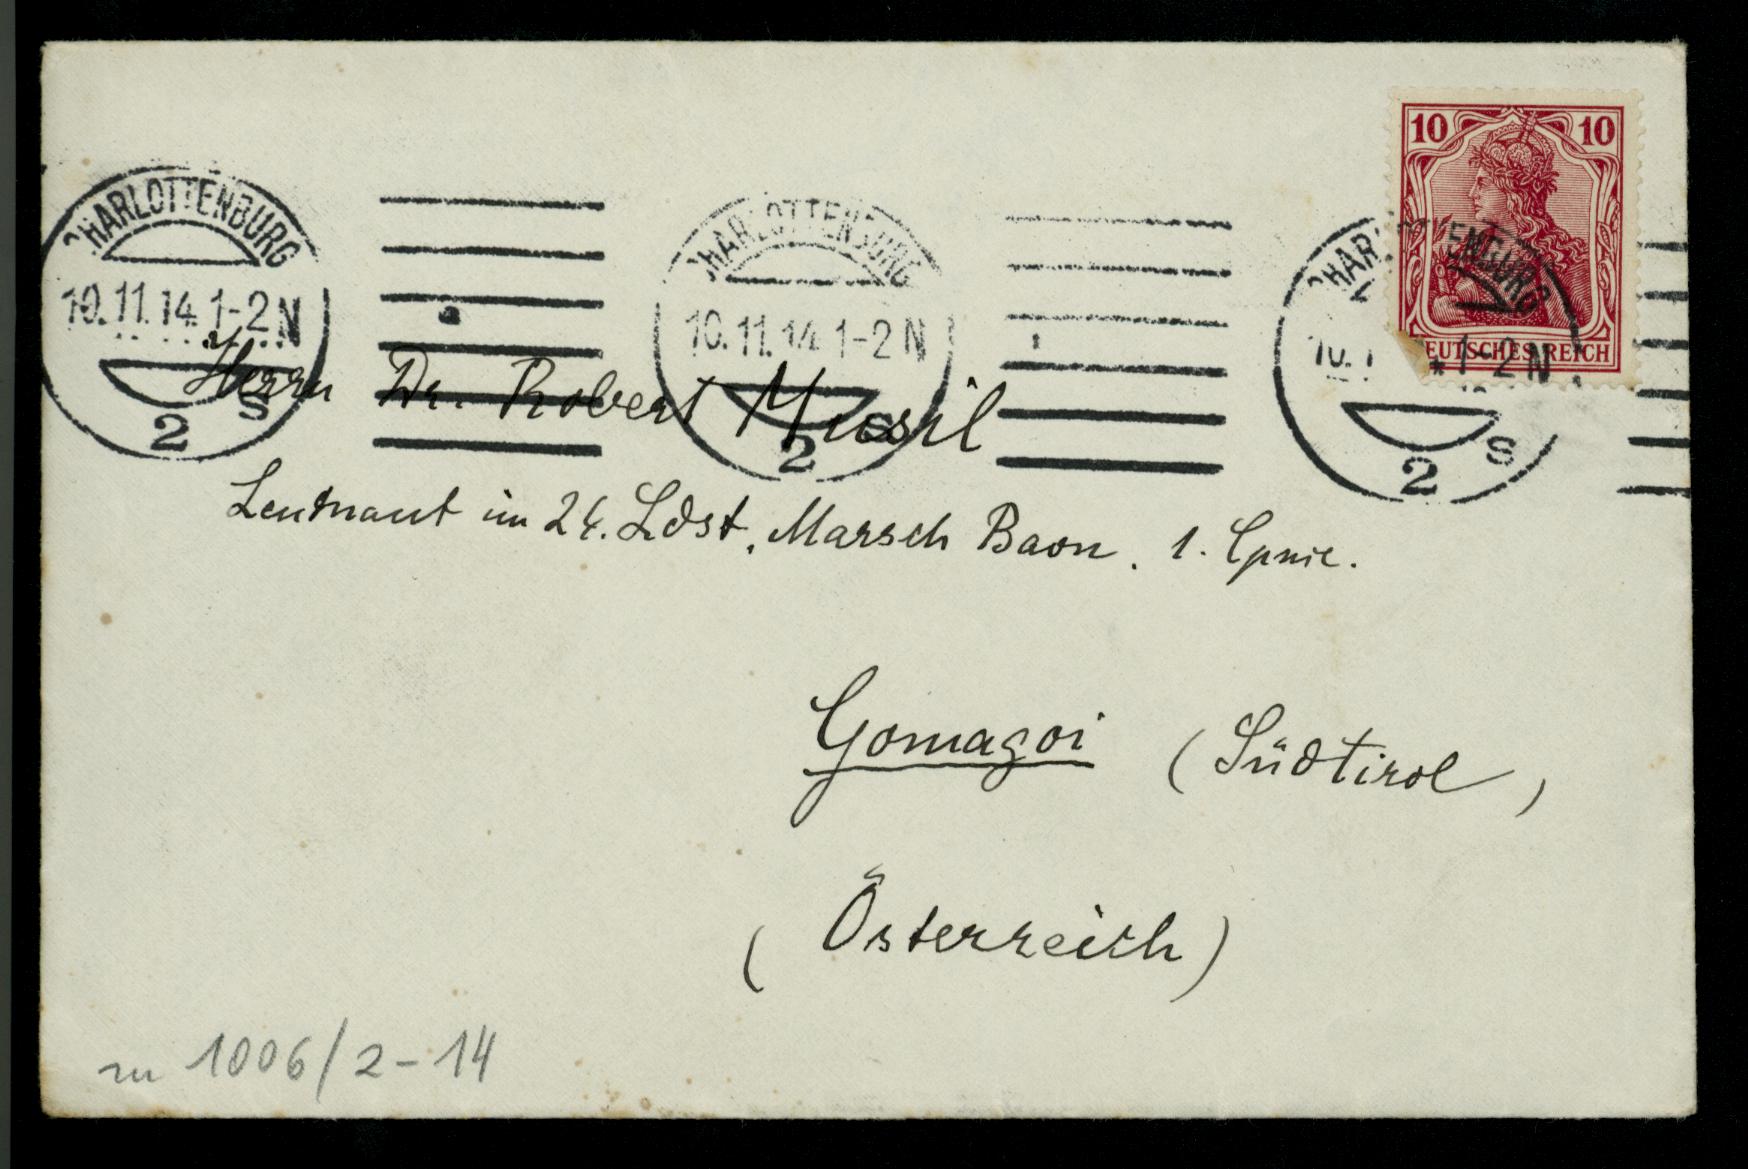 10 10
DEUTSCHES REICH
CHARLOTTENBURG CHARLOTTENBURG CHARLOTTENBURG
10.11.14. 1-2 N 10.11.14 1-2 N 10.1 1-2 N
2 S 2 S 2 S
Herrn Dr. Robert Musil
Leutnant im 24. Ldst. Marsch Baon. 1. Cpnie.
Gomagoi (Südtirol)
(Österreich)
1006/2-14